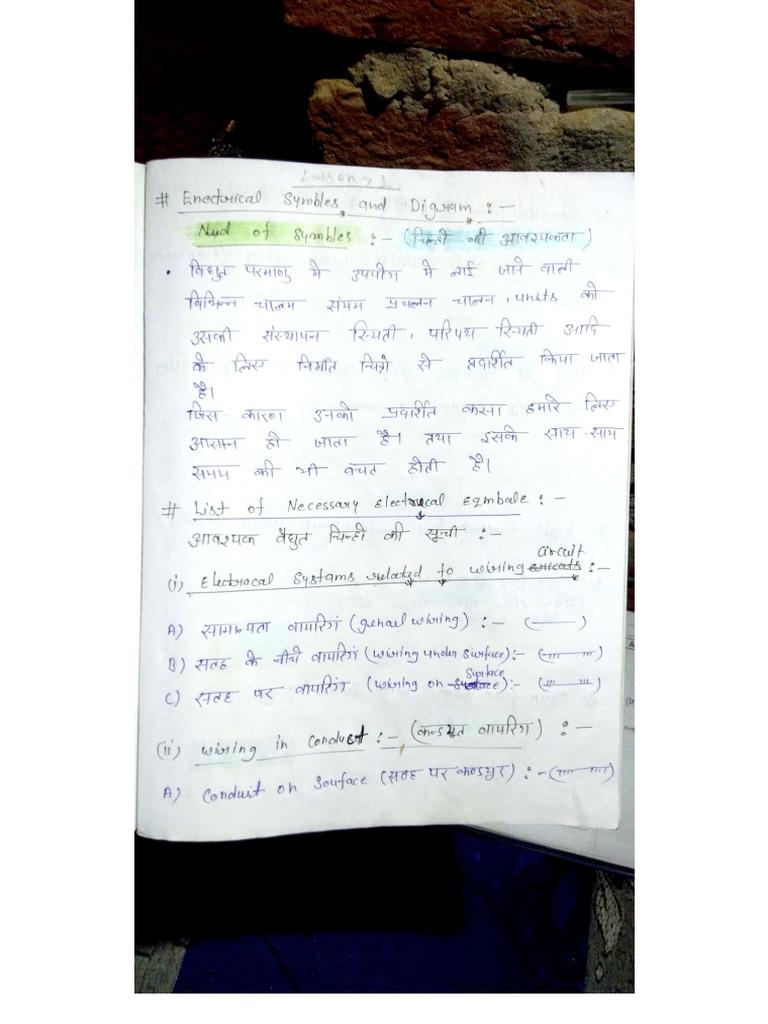 Lasson → 1
# Enectrical Symbles and Digram :-
Nud of Symbles :- (चिन्हो की आवश्यकता)
• विधुत परमाणु मे उपयोग मे लाई जाने वाली
विभिन्न चालम संयम प्रचलन चालन, units को
उसकी संस्थापन स्थिती, परिपथ स्थिती आदि
के लिए निर्मात चित्रो से प्रदार्शीत किया जाता
है।
जिस कारण उनको प्रदार्शीत करना हमारे लिए
आसान हो जाता है। तथा इसके साथ-साथ
समय की भी बचत होती है।
# List of Necessary Electrical Eqmbale :-
आवश्यक वैधुत चिन्हो की सूची :-
(i) Electracal Systams related to wiring circuit :-
A) सामान्यता वायरिंग (genail wiring) :- (——)
B) सतह के नीचे वायरिंग (wiring under surface):-
C) सतह पर वायरिंग (wiring on Surface):-
(ii) wiring in conduct :- (कन्डयुत वायरिंग) :-
A) Conduit on sourface (सतह पर कन्डयुट) :-